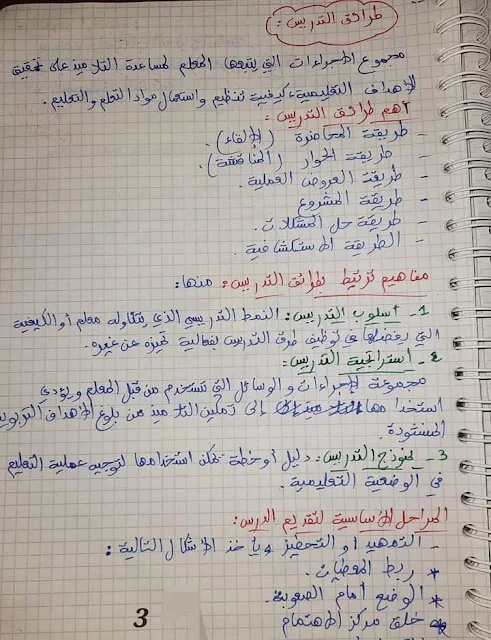 طرائق التدريس :
مجموع الاجراءات التي يتبعها المعلم لمساعدة التلاميذ على تحقيق
الأهداف التعليمية، كيفية تنظيم واستعمال مواد التعلم والتعليم.
أهم طرائق التدريس :
- طريقة المحاضرة (الإلقاء).
- طريقة الحوار (المناقشة).
- طريقة العروض العملية.
- طريقة المشروع
- طريقة حل المشكلات.
- الطريقة الاستكشافية.
مفاهيم ترتبط بطرائق التدريس: منها:
1- أسلوب التدريس: النمط التدريسي الذي يتناوله معلم أو الكيفية
التي يفضلها في توظيف طرق التدريس بفعالية تميزه عن غيره.
2- استراتجية التدريس:
مجموعة اجراءات والوسائل التي تستخدم من قبل المعلم ويؤدي
استخدامها إلى تمكين التلاميذ من بلوغ الأهداف التربوية
المنشودة.
3- نموذج التدريس: دليل أو خطة يمكن استخدامها لتوجيه عملية التعليم
في الوضعية التعليمية.
المراحل الأساسية لتقديم الدرس:
- التمهيد او التحفيز ويأخذ الاشكال التالية :
* ربط المعطيات.
* الوضع أمام الصعوبة.
* خلق مركز الاهتمام
3